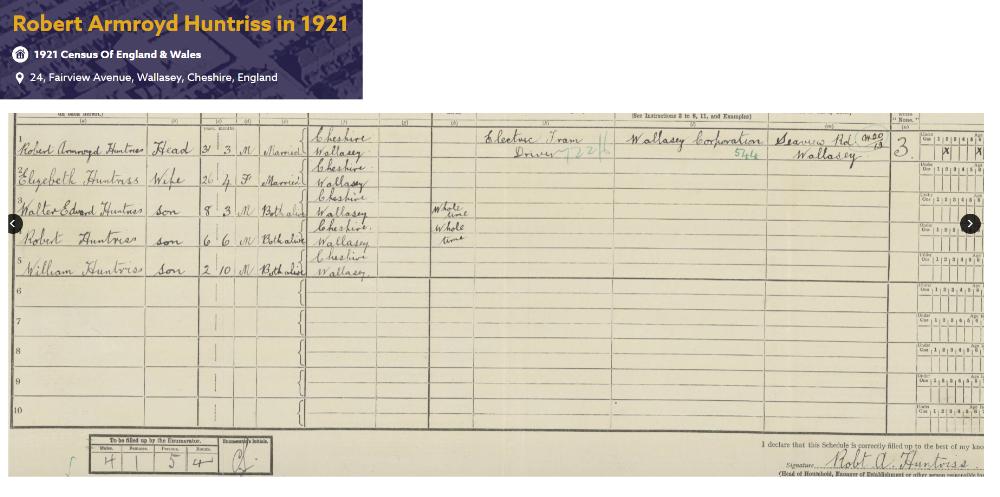 Robert Armroyd Huntriss in 1921
1921 Census Of England & Wales
24, Fairview Avenue, Wallasey, Cheshire, England
(See Instructions 2 to 9, 11, and Examples)
"None."
(a) (b) (c) (d) (e) (f) (g) (h) (k) (l) (m) (n)
years. months.
1 Robert Armroyd Huntriss Head 31 3 M Married Cheshire Wallasey Electric Tram Driver Wallasey Corporation 544 Seaview Rd. Wallasey 3.
2 Elizebeth Huntriss Wife 26 4 F Married Cheshire Wallasey
3 Walter Edward Huntriss son 8 3 M Both alive Cheshire Wallasey Whole time
Robert Huntriss son 6 6 M Both alive Cheshire. Wallasey Whole time
5 William Huntriss son 2 10 M Both alive Cheshire Wallasey.
6
7
8
9
10
To be filled up by the Enumerator.
Males. Females. Persons. Rooms.
4 1 5 4
Enumerator's Initials.
I declare that this Schedule is correctly filled up to the best of my kno
Signature Robt A. Huntriss
(Head of Household, Manager of Establishment or other person responsible for